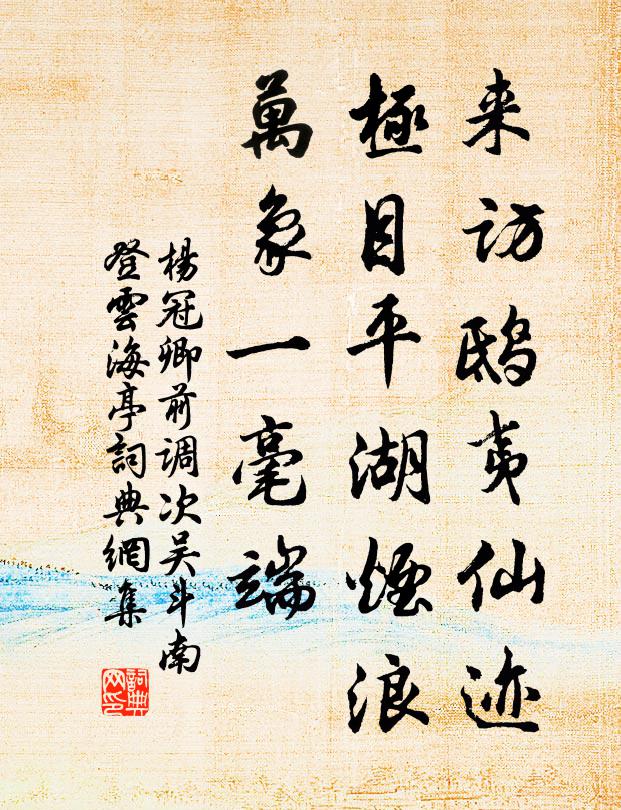 来访鸱夷仙迹
極目平湖煙浪
萬象一毫端
楊冠卿前调次吴斗南
登雲海亭詞典網集
詞典网印